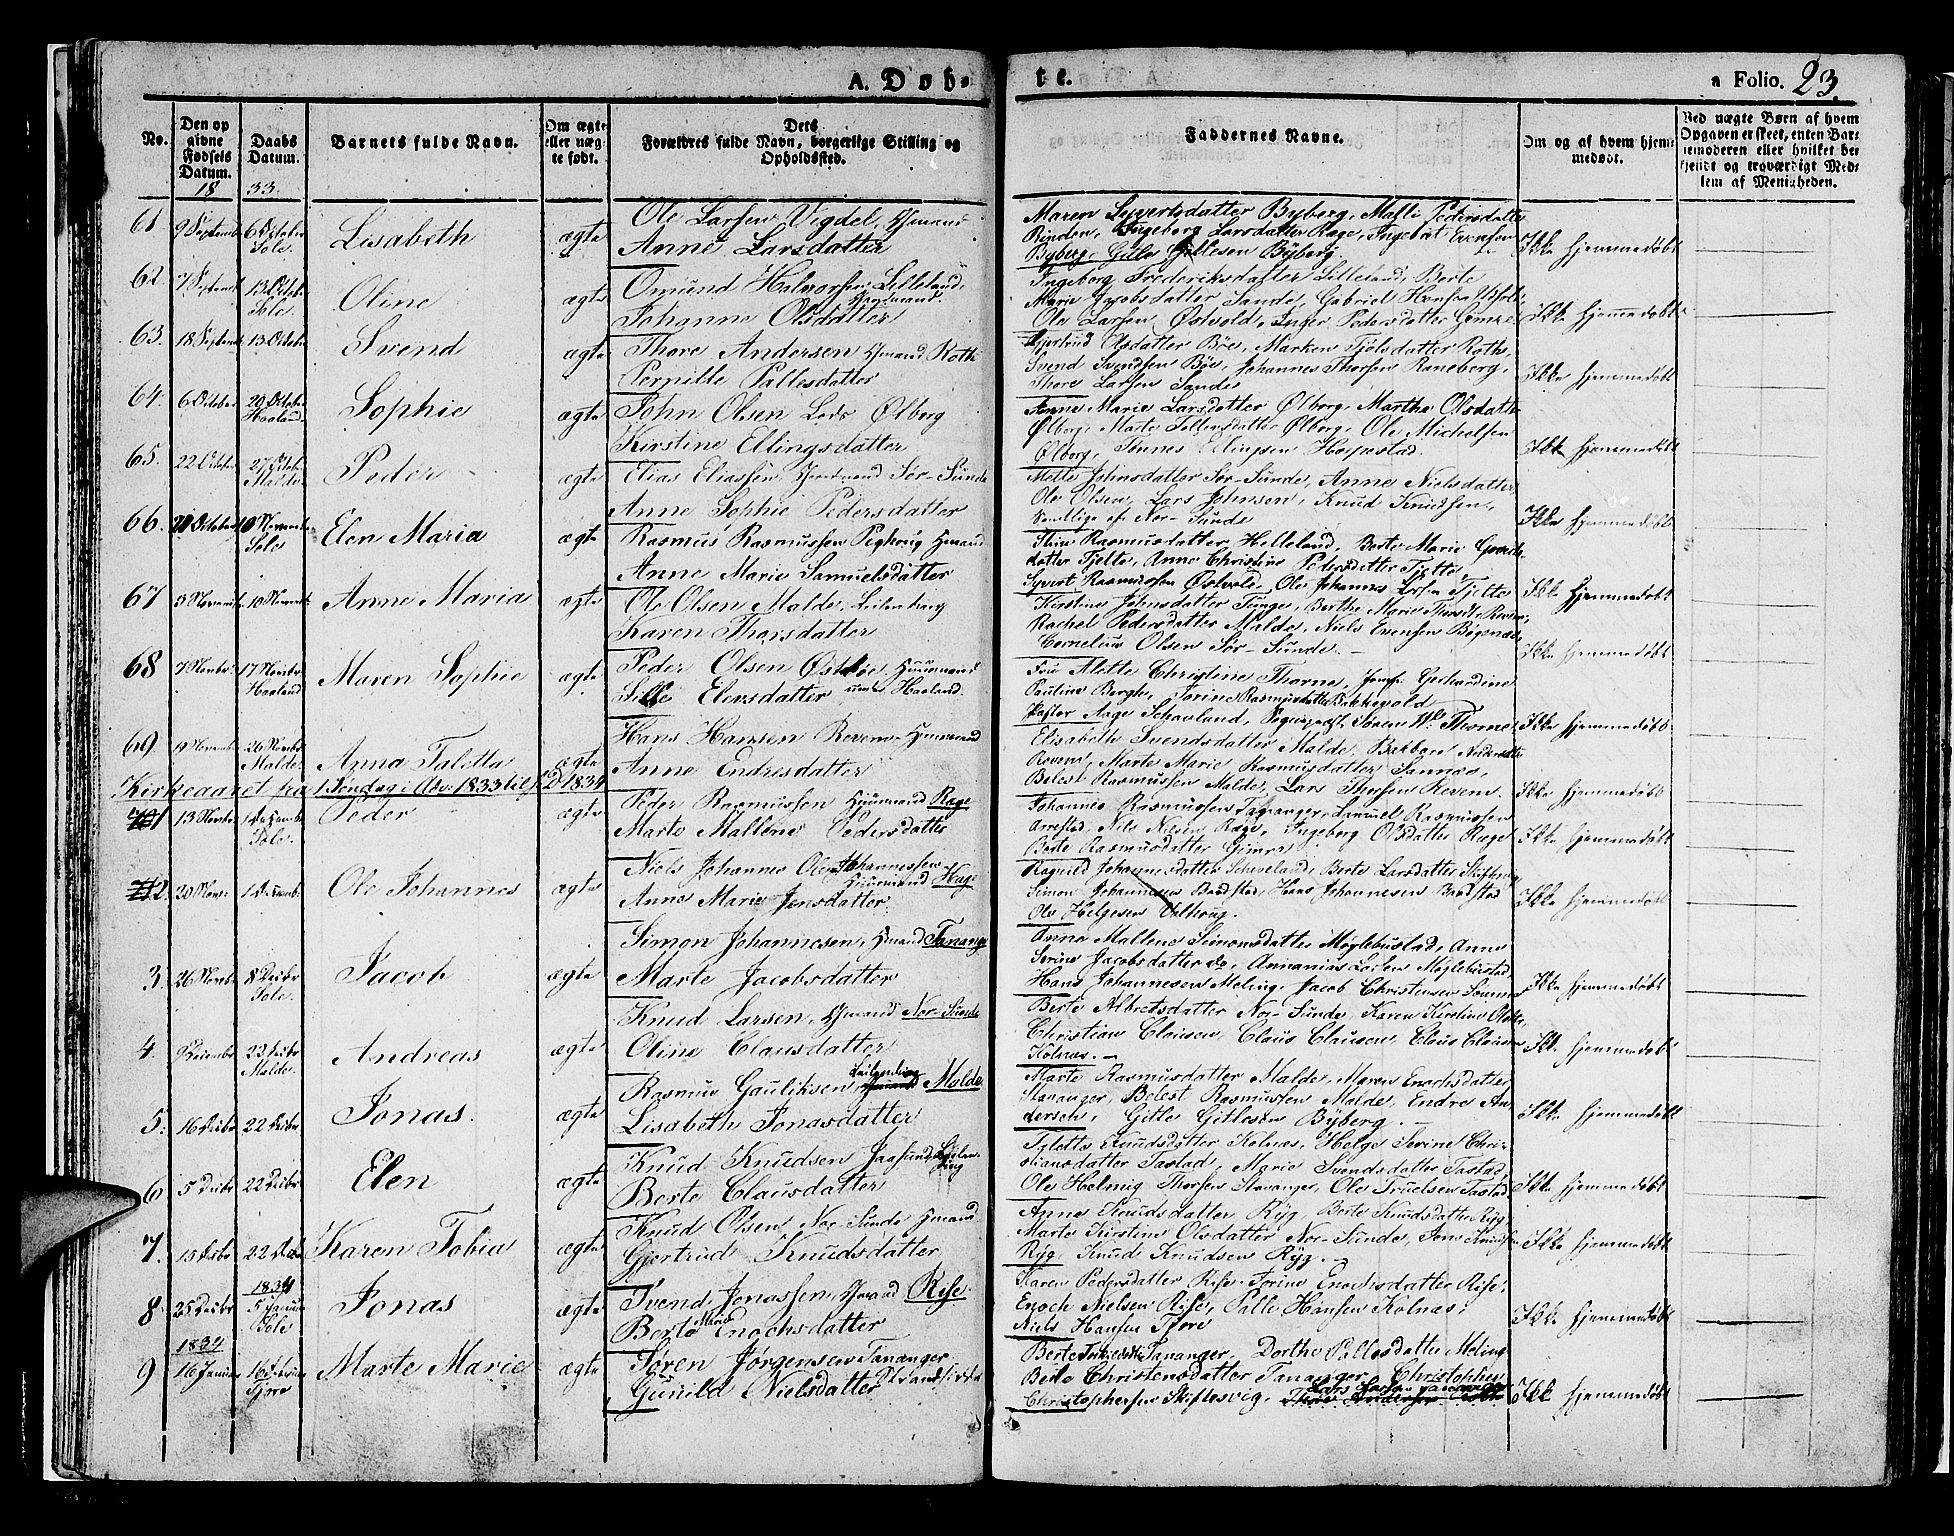 A. Døb-
te.
a Folio. 23.
No.
Den op
givne
Fødsels
Datum.
Daabs
Datum.
Barnets fulde Navn.
Om ægte
eller uæg
te født.
Dets
Forældres fulde Navn, borgerlige Stilling og
Opholdssted.
Faddernes Navne.
Om og af hvem hjem
medøbt.
Ved uægte Børn af hvem
Opgaven er skeet, enten Bar-
nemoderen eller hvilket be
kjendt og troværdigt Med-
lem af Menigheden.
18 33.
61 9 Septemb 6 October Lisabeth ægte Ole Larsen Vigdel, Huusmand
Sole. Anne Larsdatter
Maren Syvertsdatter Byberg, Malli Pedersdatter
Ingeborg Larsdatter Rage, Ingebret Evensen
Byberg, Gitle Gitlesen Byberg.
Ikke hjemmedøbt
62. 7 Septemb 13 Octobr Oline ægte Omund Halvorsen Lilleland,
Sole. Huusmand.
Johanne Olsdatter
Ingeborg Frederiksdatter Lilleland, Berte
Marie Jacobsdatter Sunde, Gabriel Hansen
Ole Larsen Østvold, Inger Pedersdatter Gimre
Ikke hjemmedøbt
63. 18 Septemb 13 Octobr Svend ægte Thore Andersen Huusmand Roth
Pernille Pallesdatter
Gjertrud Olsdatter Bøe, Marken Tjølsdatter Roth,
Svend Svendsen Bøe, Johannes Thorsen Raneberg,
Thore Larsen Sunde
Ikke hjemmedøbt
64. 6 October 20 October Sophie ægte John Olsen Lods Ølberg
Haaland Kirstine Ellingsdatter
Anne Marie Larsdatter Ølberg, Martha Olsdatter
Ølberg, Marte Tollevsdatter Ølberg, Ole Michelsen
Ølberg, Tønnes Ellingsen Hognestad.
Ikke hjemmedøbt
65. 22 Octobr 27 Octobr Peder ægte Elias Eliassen Huusmand Sør-Sunde
Malde Anne Sophie Pedersdatter
Mette Johnsdatter Sør-Sunde, Anne Nielsdatter
Ole Olsen, Lars Johnsen, Knud Knudsen,
Samtlige af Nor-Sunde
Ikke hjemmedøbt
66. 21 October 10 Novembr Elen Maria ægte Rasmus Rasmussen
Sole Anne Marie Samuelsdatter
Rasmusdatter Helleland, Berte Marie
datter Tjelte, Anne Christine Pedersdatter Tjelte,
Syvert Rasmussen Østvold, Ole Johannes Olsen Tjelte
Ikke hjemmedøbt
67 5 Novemb 10 Novemb Anne Maria ægte Ole Olsen Malde, Leilending
Karen Thorsdatter
Kirstine Johnsdatter Tunge, Berthe Marie Thorsdtr Reven
Rachel Pedersdatter Malde, Niels Evensen
Cornelius Olsen Sør-Sunde. -
Ikke hjemmedøbt
68 7 Novbr. 17 Novbr Maren Sophie ægte Peder Olsen Huusmand
Haaland Sille Elensdatter under Haaland.
Fru Mette Christine Thorne, Jomfr Gerhardine
Pauline Bergh, Jorine Rasmusdatter Bakkevold
Pastor Aage Schavland, Søren Thorne
Ikke hjemmedøbt
69 19 Novembr 26 Novbr Anna Taletta ægte Hans Hansen Reven Huusmand
Malde. Anne Endresdatter
Elisabeth Svendsdatter Malde, Barbro
Reven, Marte Marie Rasmusdatter Sannæs,
Belest Rasmussen Malde, Lars Thorsen Reven.
Ikke hjemmedøbt
Kirkeaaret fra 1 Søndag i Adv: 1833 til D 1834
1 13 Novbr 1 Decemb Peder ægte Peder Rasmussen Huusmand Rage
Sole. Marte Mallene Pedersdatter
Johannes Rasmussen Tananger, Samuel Rasmussen
Arrestad, Nils Nielsen Rage, Ingeborg Olsdatter Rage
Berte Rasmusdatter Gimre
Ikke hjemmedøbt
2. 20 Nov: 1 Decemb. Ole Johannes ægte Niels Johannes Ole Johannessen
Huusmand Hage
Anne Marie Jensdatter
Ragnild Johannesdatter Schieveland, Berte Larsdatter
Simon Johannesen, Hans Johannesen
Ole Helgesen
Ikke hjemmedøbt
3. 26 Novbr 8 Decbr Jacob ægte Simon Johannesen, Huusmand Tanange
Sole. Marte Jacobsdatter
Anna Mallene Simonsdatter Møglebustad, Anne
Serine Jacobsdatter do, Annanias Møglebustad
Hans Johannesen Meling, Jacob Christensen
Ikke hjemmedøbt
4. 9 Decembr 22 Decbr Andreas ægte Knud Larsen, Huusmand Nor-Sunde
Malde. Oline Clausdatter
Berte Albretsdatter Nor-Sunde Karen Kirstine
Christian Clausen, Claus Clausen, Elaus Clausen
Kolnæs. -
Ikke hjemmedøbt
5. 16 Decbr 22 Decbr Jonas. ægte Rasmus Gauliksen Leilending Malde
Lisabeth Jonasdatter
Marte Rasmusdatter Malde, Maren Enochsdatter
Stavanger, Belest Rasmussen Malde, Endre An
dersen, Gitle Gitlesen Byberg. -
Ikke hjemmedøbt
6 5 Decbr 22 Decbr Elen ægte Knud Knudsen Jaasund Leilen-
ding
Berte Clausdatter
Knudsdatter Kolnæs, Helge Serine Chri-
stiansdatter Tastad, Marie Svendsdatter Tastad
Ole Helmig Thorsen Stavanger, Ole Truelsen Tastad
Ikke hjemmedøbt
7. 15 Decbr 22 Decbr Karen Tobia ægte Knud Olsen Nor-Sunde Huusmand
Gjertrud Knudsdatter
Anne Knudsdatter Ryg, Berte Knudsdatter Ryg
Marte Kirstine Olsdatter Nor-Sunde, Jens Knudsen
Ryg, Knud Knudsen Ryg. -
Ikke hjemmedøbt
1834
8 25 Decbr 5 Januar Jonas ægte Svend Jonassen, Huusmand Risa.
Sole Berte Marie Enochsdatter
Karen Pedersdatter Risa, Jorine Enochsdatter Risa,
Enoch Nielsen Risa, Palle Hansen Kolnæs,
Niels Hansen Tjore
Ikke hjemmedøbt
1834
9 16 Januar 16 Februar Marte Marie ægte Søren Jørgensen Tananger
Tjore Gunild Nielsdatter Strandsidder
Berte Tananger, Dorthe Pallesdatter Meling
Berte Christensdatter Tananger, Christopher
Christophersen Skiftesvig, Lars Larsen Tananger
Ikke hjemmedøbt